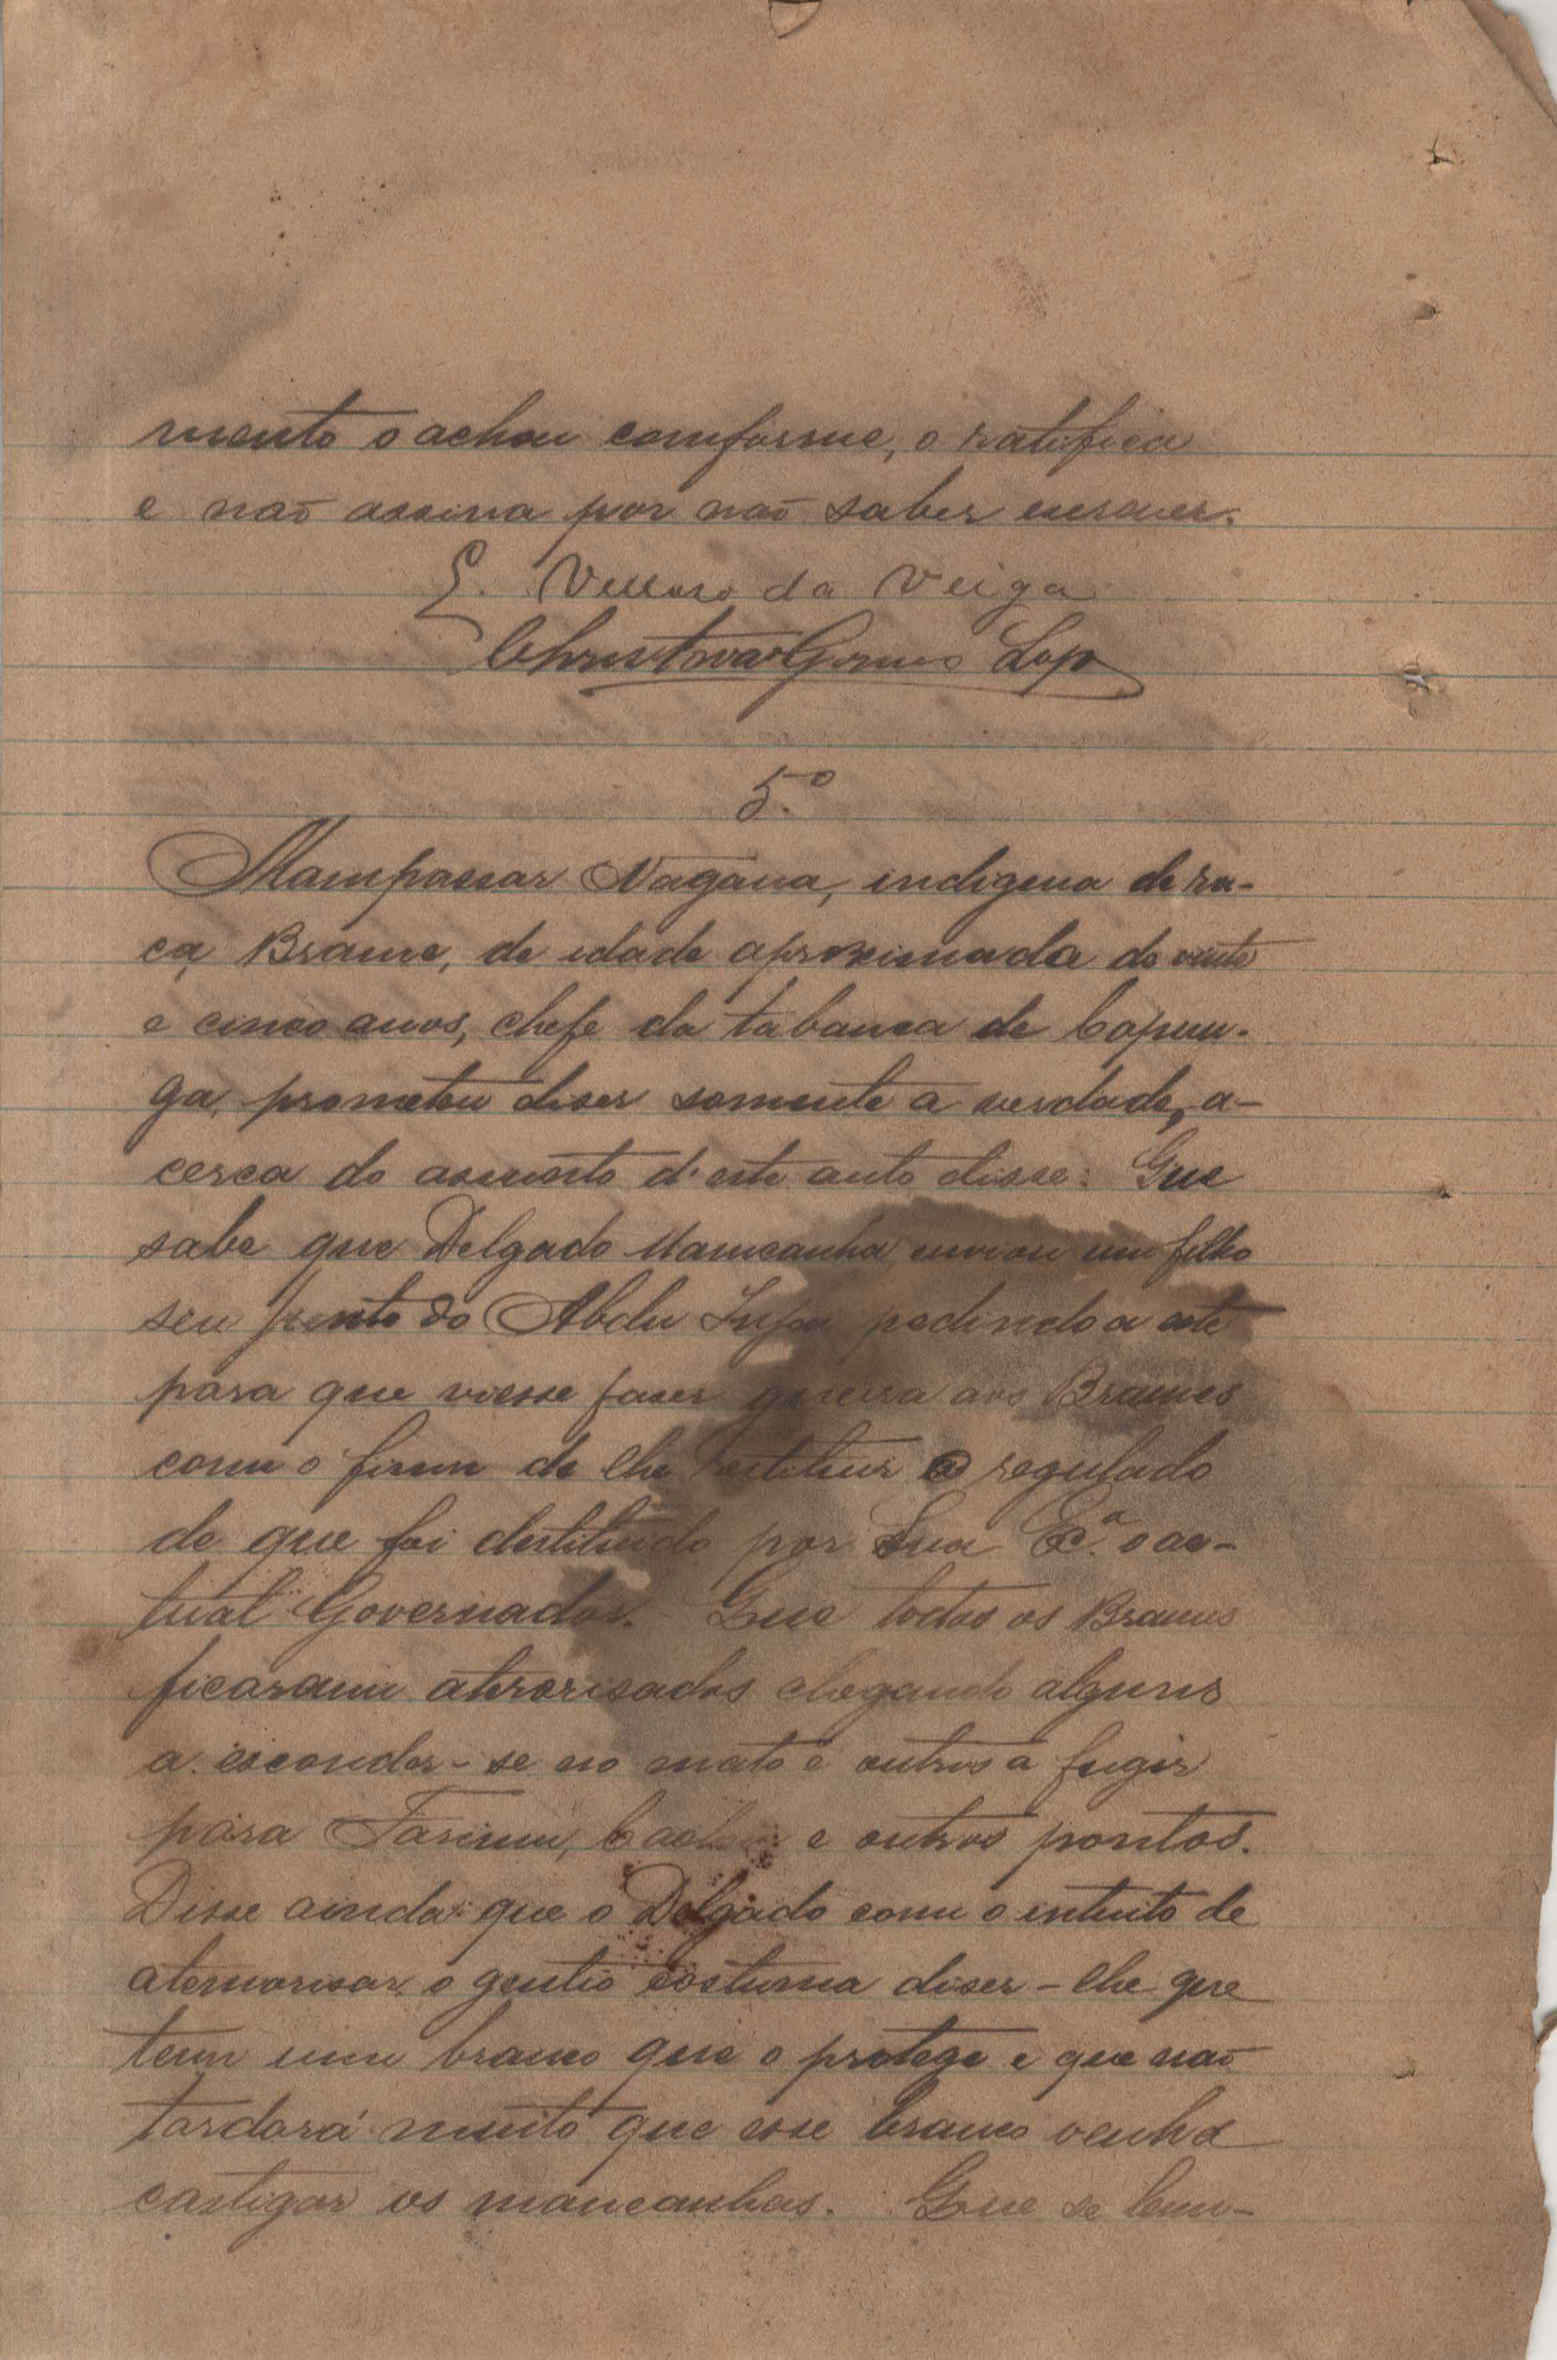 mento o achou comforme, o ratifica
e não assina por não saber escrever.
E. Velloso da Veiga
Christovão Gomes Lopes
5.º
Mampassar Nagana, indigena de ra-
ça Brame, de idade aproximada de vinte
e cinco anos, chefe da tabanca de Capun-
ga, prometeu diser somente a verdade, a-
cerca do assunto d'este auto disse: Que
sabe que Delgado Mamcanha enviou um filho
seu junto do Abdu Injai pedindo a este
para que viesse faser guerra aos Brames
com o fim de lhe restituir o regulado
de que foi destituido por Sua Ex.ª o ac-
tual Governador. Que todos os Brames
ficaram aterrorisados chegando alguns
a esconder-se no mato e outros a fugir
para Farim, e outros pontos.
Disse ainda que o Delgado com o intuito de
atemorisar o gentio costuma diser-lhe que
tem um branco que o protege e que não
tardará muito que esse branco venha
castigar os mancanhas. Que se lem-